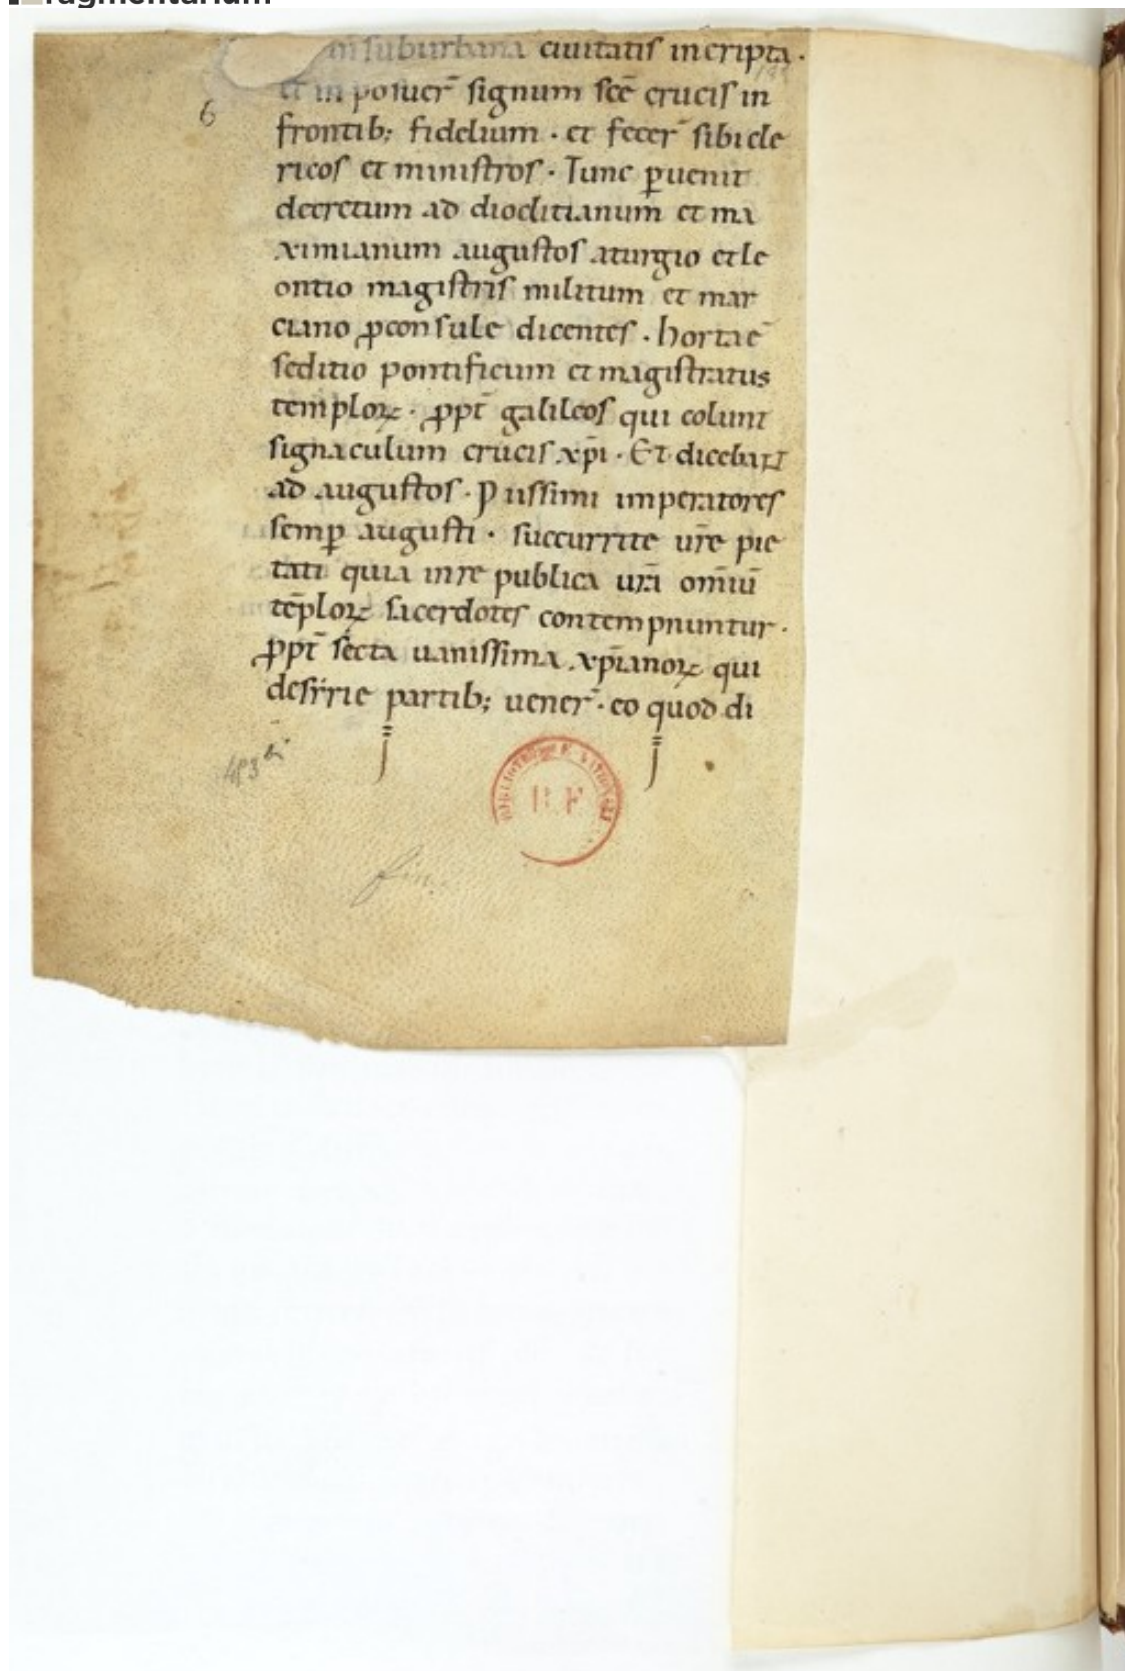 fragmentarium
in suburbana ciuitatis incripta ·
et in posuer̄ signum sc̄e crucis in
6
frontib; fidelium · et fecer̄ sibi cle
ricos et ministros · Tunc ꝑuenit
decretum ad dioclitianum et ma
ximianum augustos aturgio et le
ontio magistris militum et mar
ciano ꝓconsule dicentes · horta ē
seditio pontificum et magistratus
temploꝝ · ꝓpt̄ galileos qui colunt
signaculum crucis xp̄i · Et dicebant
ad augustos · Piissimi imperatores
semꝑ augusti · succurrite ur̄e pie
tati quia in re publica ur̄a om̄iū
tēploꝝ sacerdotes contempnuntur ·
ꝓpt̄ secta uanissima xp̄ianoꝝ qui
de sẏrie partib; uener̄ · eo quod di
483 bis
BIBLIOTHEQUE NATIONALE
B. F.
fin.